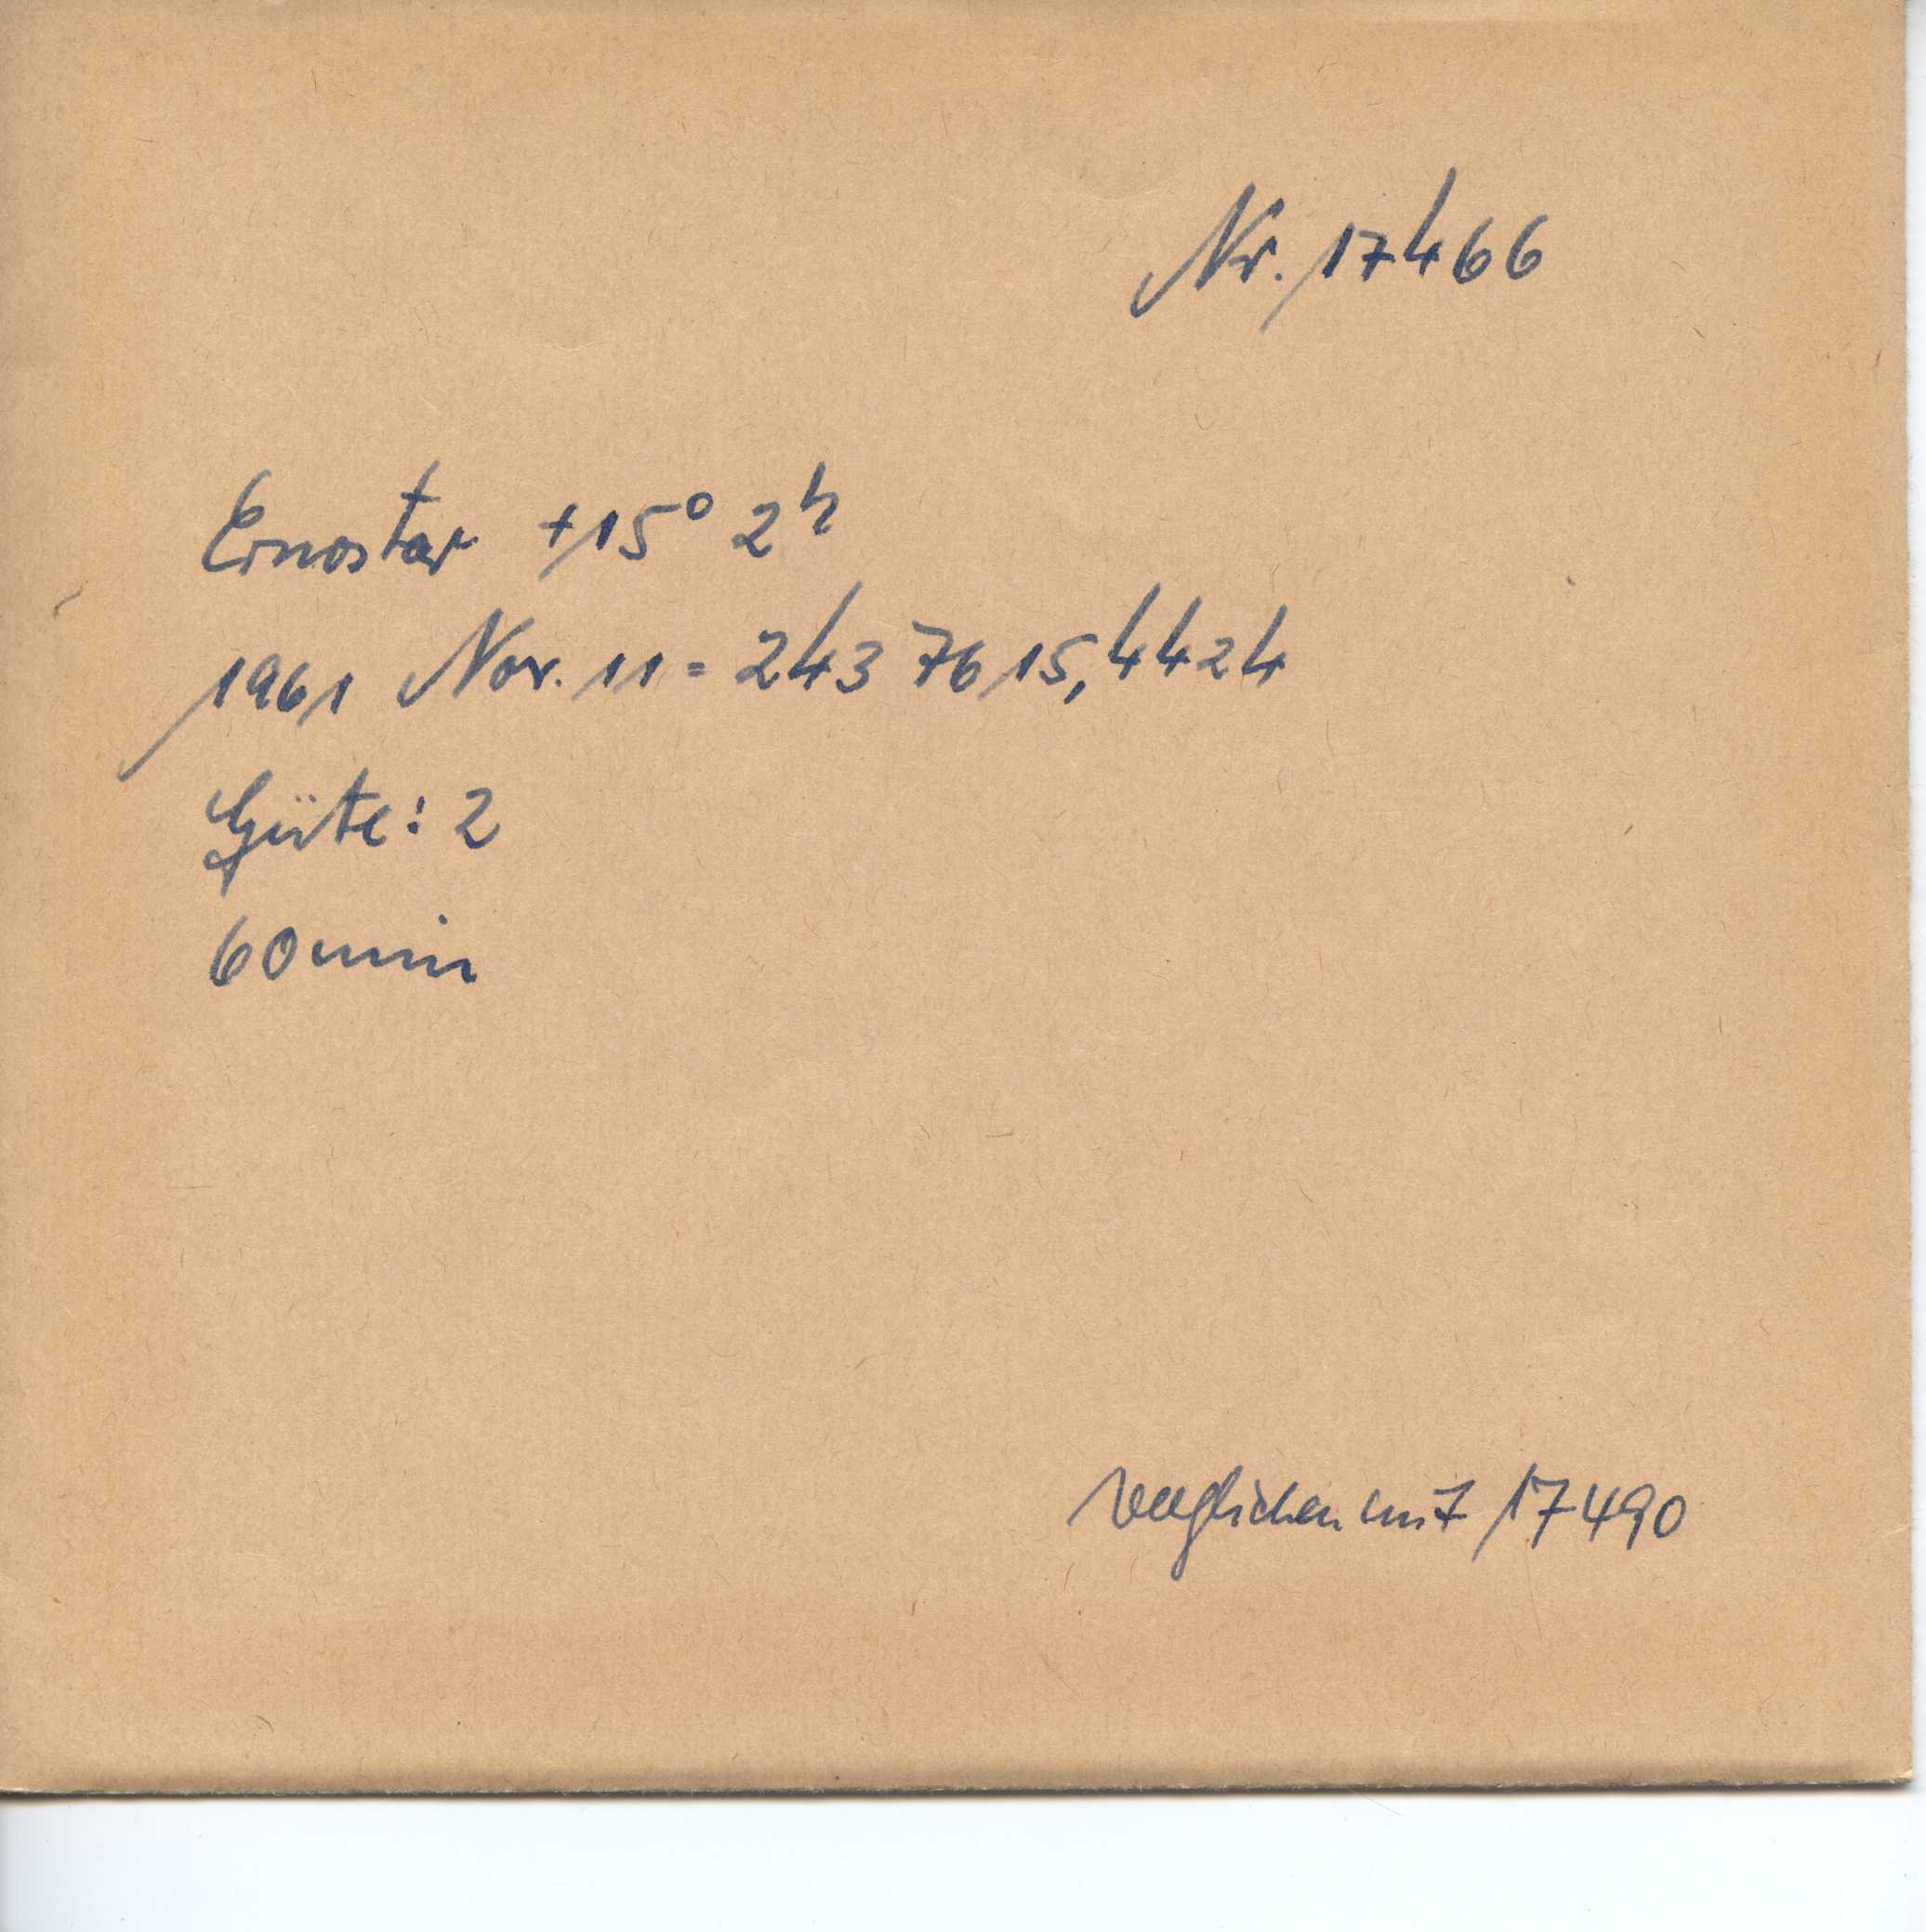 Nr. 17466
Ernostar +15° 2ʰ
1961 Nov. 11 = 243 7615,4424
Güte: 2
60 min
verglichen mit 17490